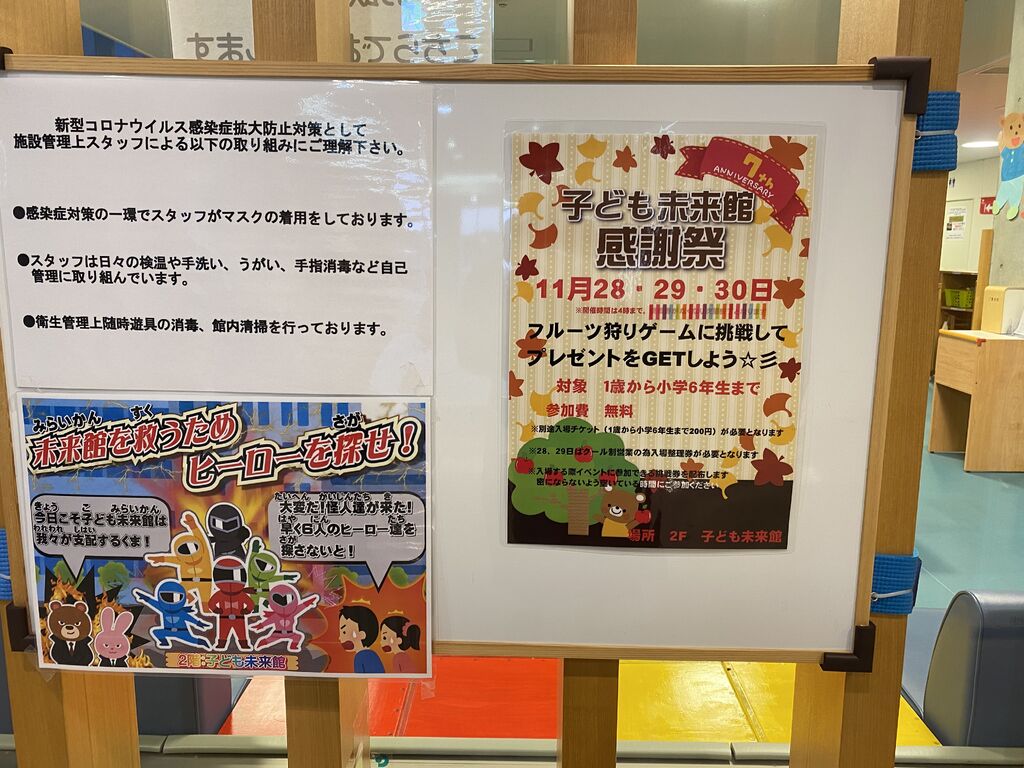 新型コロナウイルス感染症拡大防止対策として
施設管理上スタッフによる以下の取り組みにご理解下さい。
●感染症対策の一環でスタッフがマスクの着用をしております。
●スタッフは日々の検温や手洗い、うがい、手指消毒など自己
管理に取り組んでいます。
●衛生管理上随時遊具の消毒、館内清掃を行っております。
みらいかん すく
未来館を救うため
さが
ヒーローを探せ!
きょう こ みらいかん
今日こそ子ども未来館は
われわれ しはい
我々が支配するくま!
たいへん かいじんたち き
大変だ!怪人達が来た!
はや にん たち
早く6人のヒーロー達を
さが
探さないと!
2階:子ども未来館
7th
ANNIVERSARY
子ども未来館
感謝祭
11月28・29・30日
※開催時間は4時まで。
フルーツ狩りゲームに挑戦して
プレゼントをGETしよう☆彡
対象 1歳から小学6年生まで
参加費 無料
※別途入場チケット(1歳から小学6年生まで200円)が必要となります
※28、29日はクール制営業の為入場整理券が必要となります
※入場する際イベントに参加できる挑戦券を配布します
密にならないよう空いている時間にご参加ください
場所 2F 子ども未来館